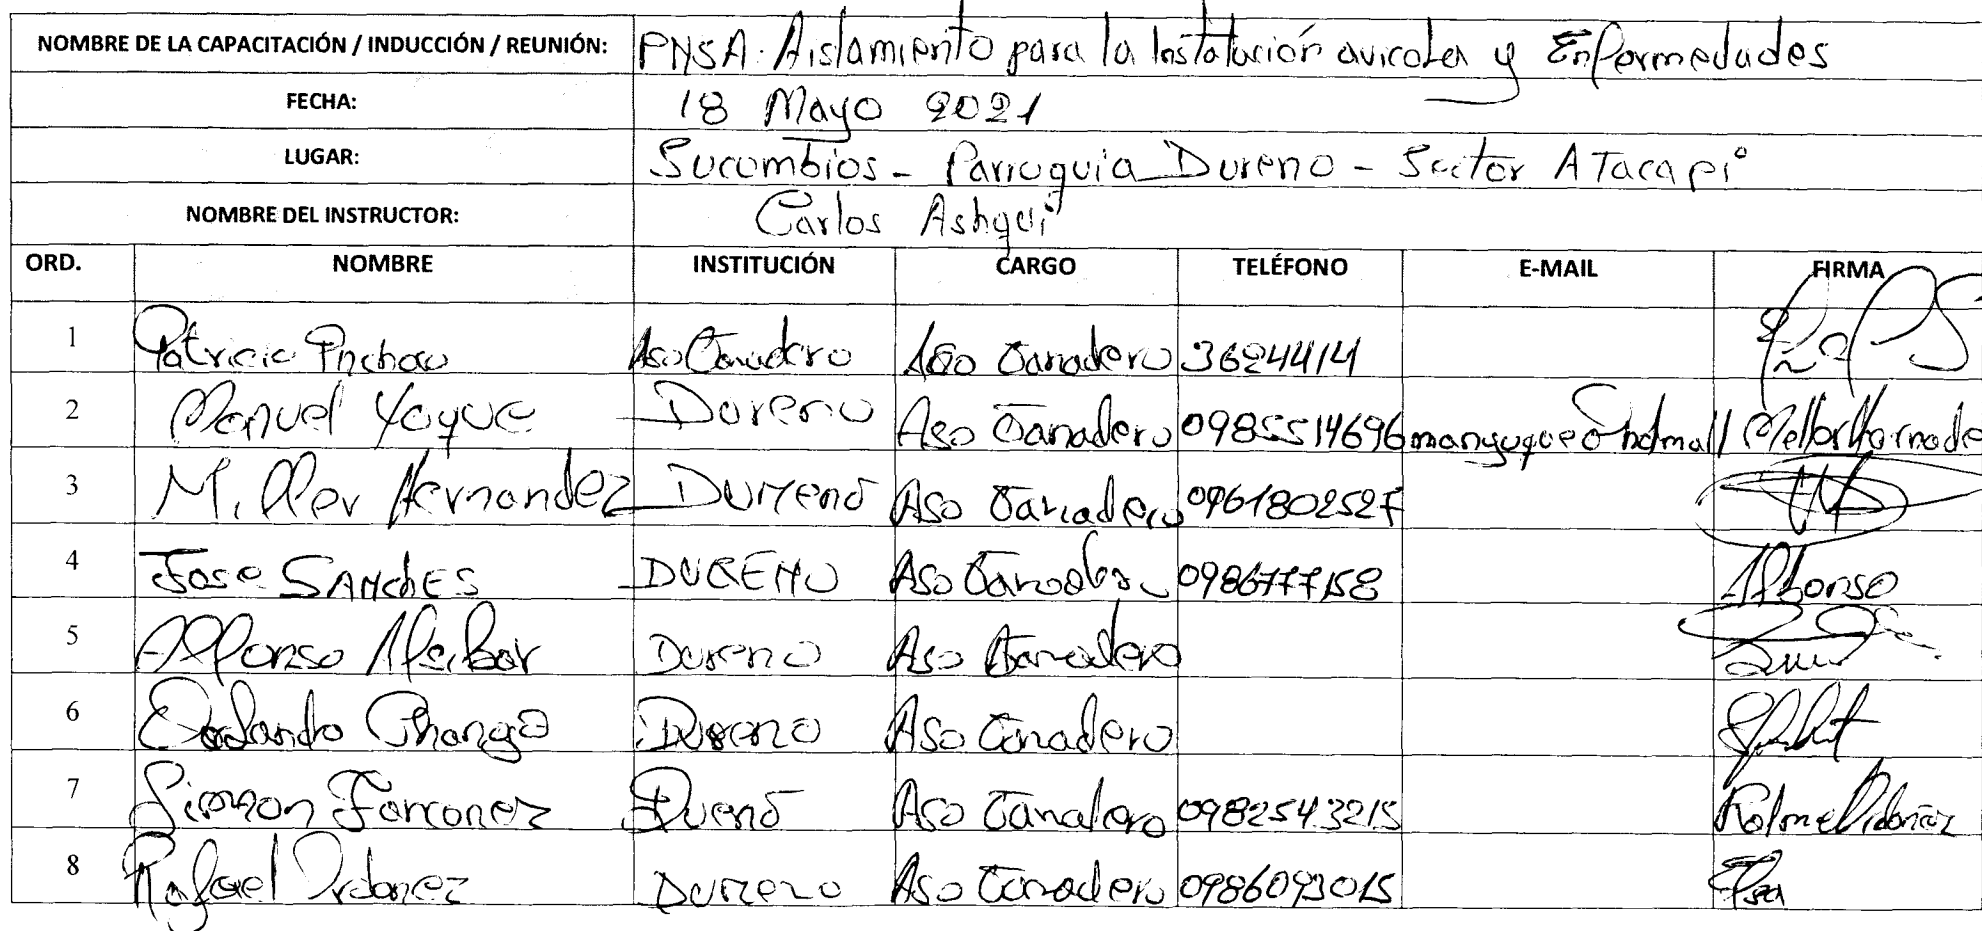 NOMBRE DE LA CAPACITACIÓN / INDUCCIÓN / REUNIÓN: PNSA: Aislamiento para la Instalación avicola y Enfermedades
FECHA: 18 Mayo 2021
LUGAR: Sucumbios - Parroquia Dureno - Sector ATacapi
NOMBRE DEL INSTRUCTOR: Carlos Ashqui
ORD. NOMBRE INSTITUCIÓN CARGO TELÉFONO E-MAIL FIRMA
1 Patricio Aso Ganadero Aso Ganadero 3624414
2 Manuel Yaque Dureno Aso Ganadero 0985514696
3 Miller Hernandez Dureno Aso Ganadero 0961802527
4 Jose SANchES DURENO Aso Ganadero 0986777158 Alfonso
5 Alfonso Dureno Aso Ganadero
6 Orlando Chango Dureno Aso Ganadero
7 Simon Dueno Aso Ganadero 0982543215
8 Rafael Ordonez Dureno Aso Ganadero 0986093015